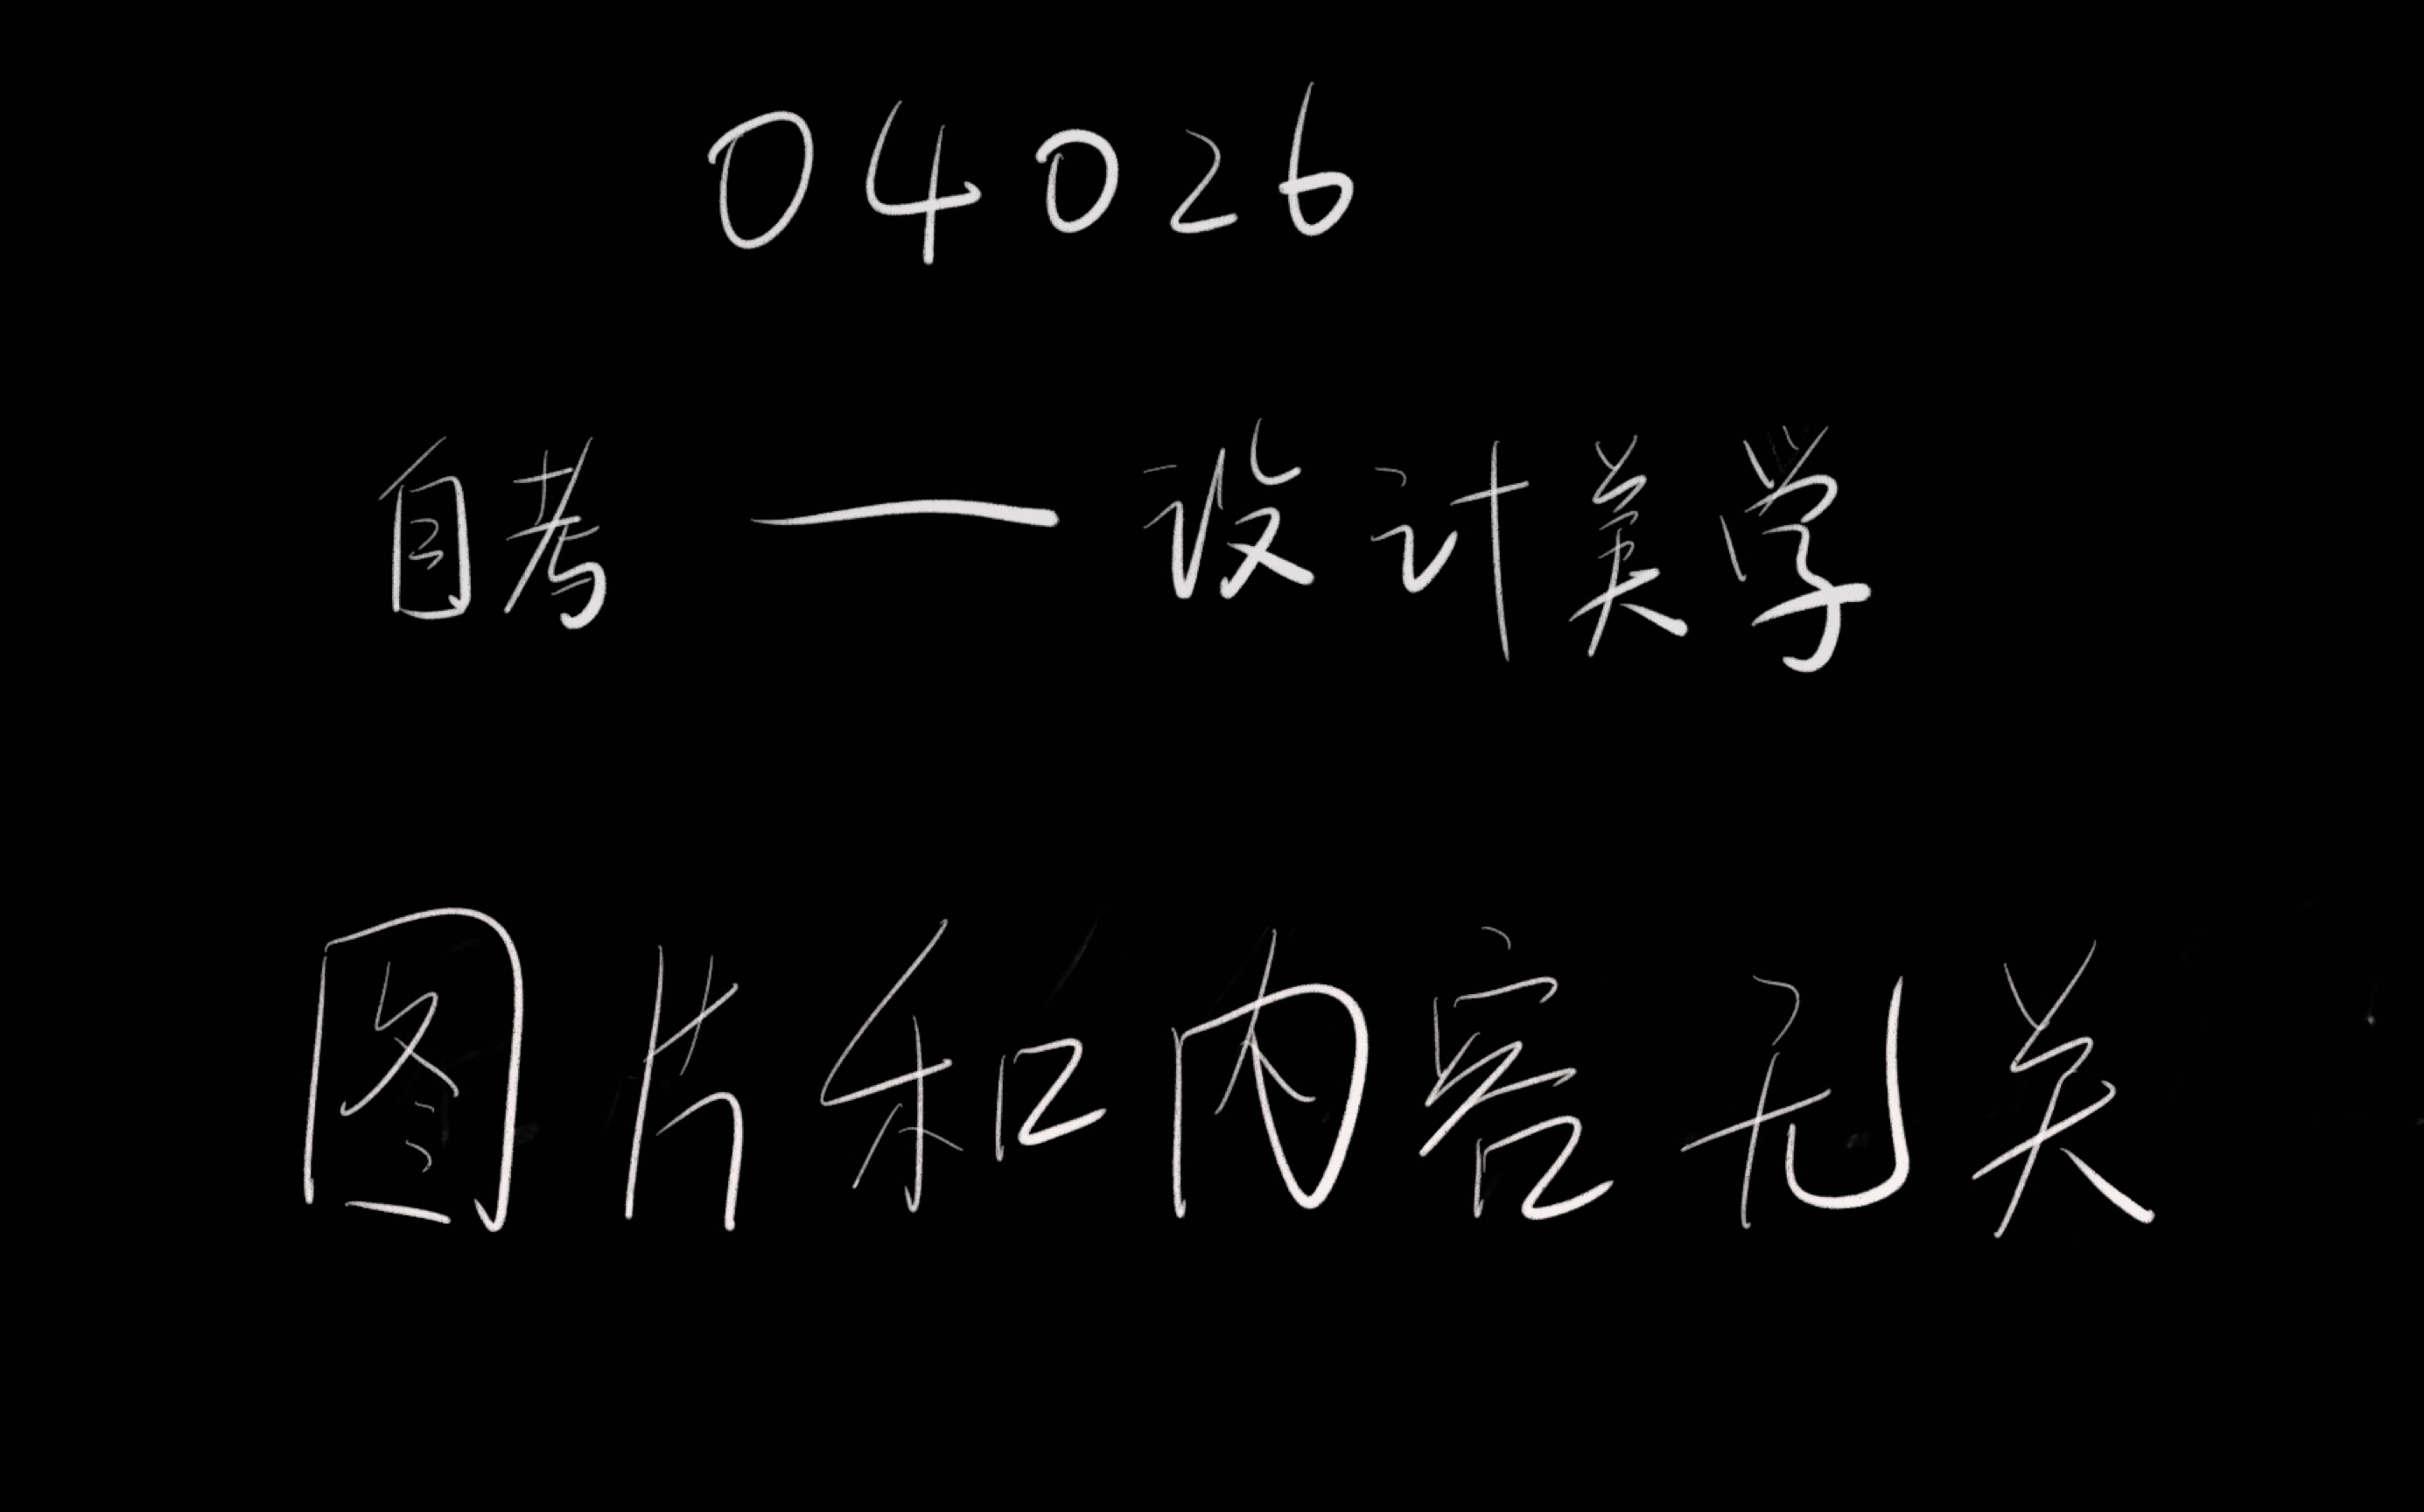 04026
自考——设计美学
图片和内容无关